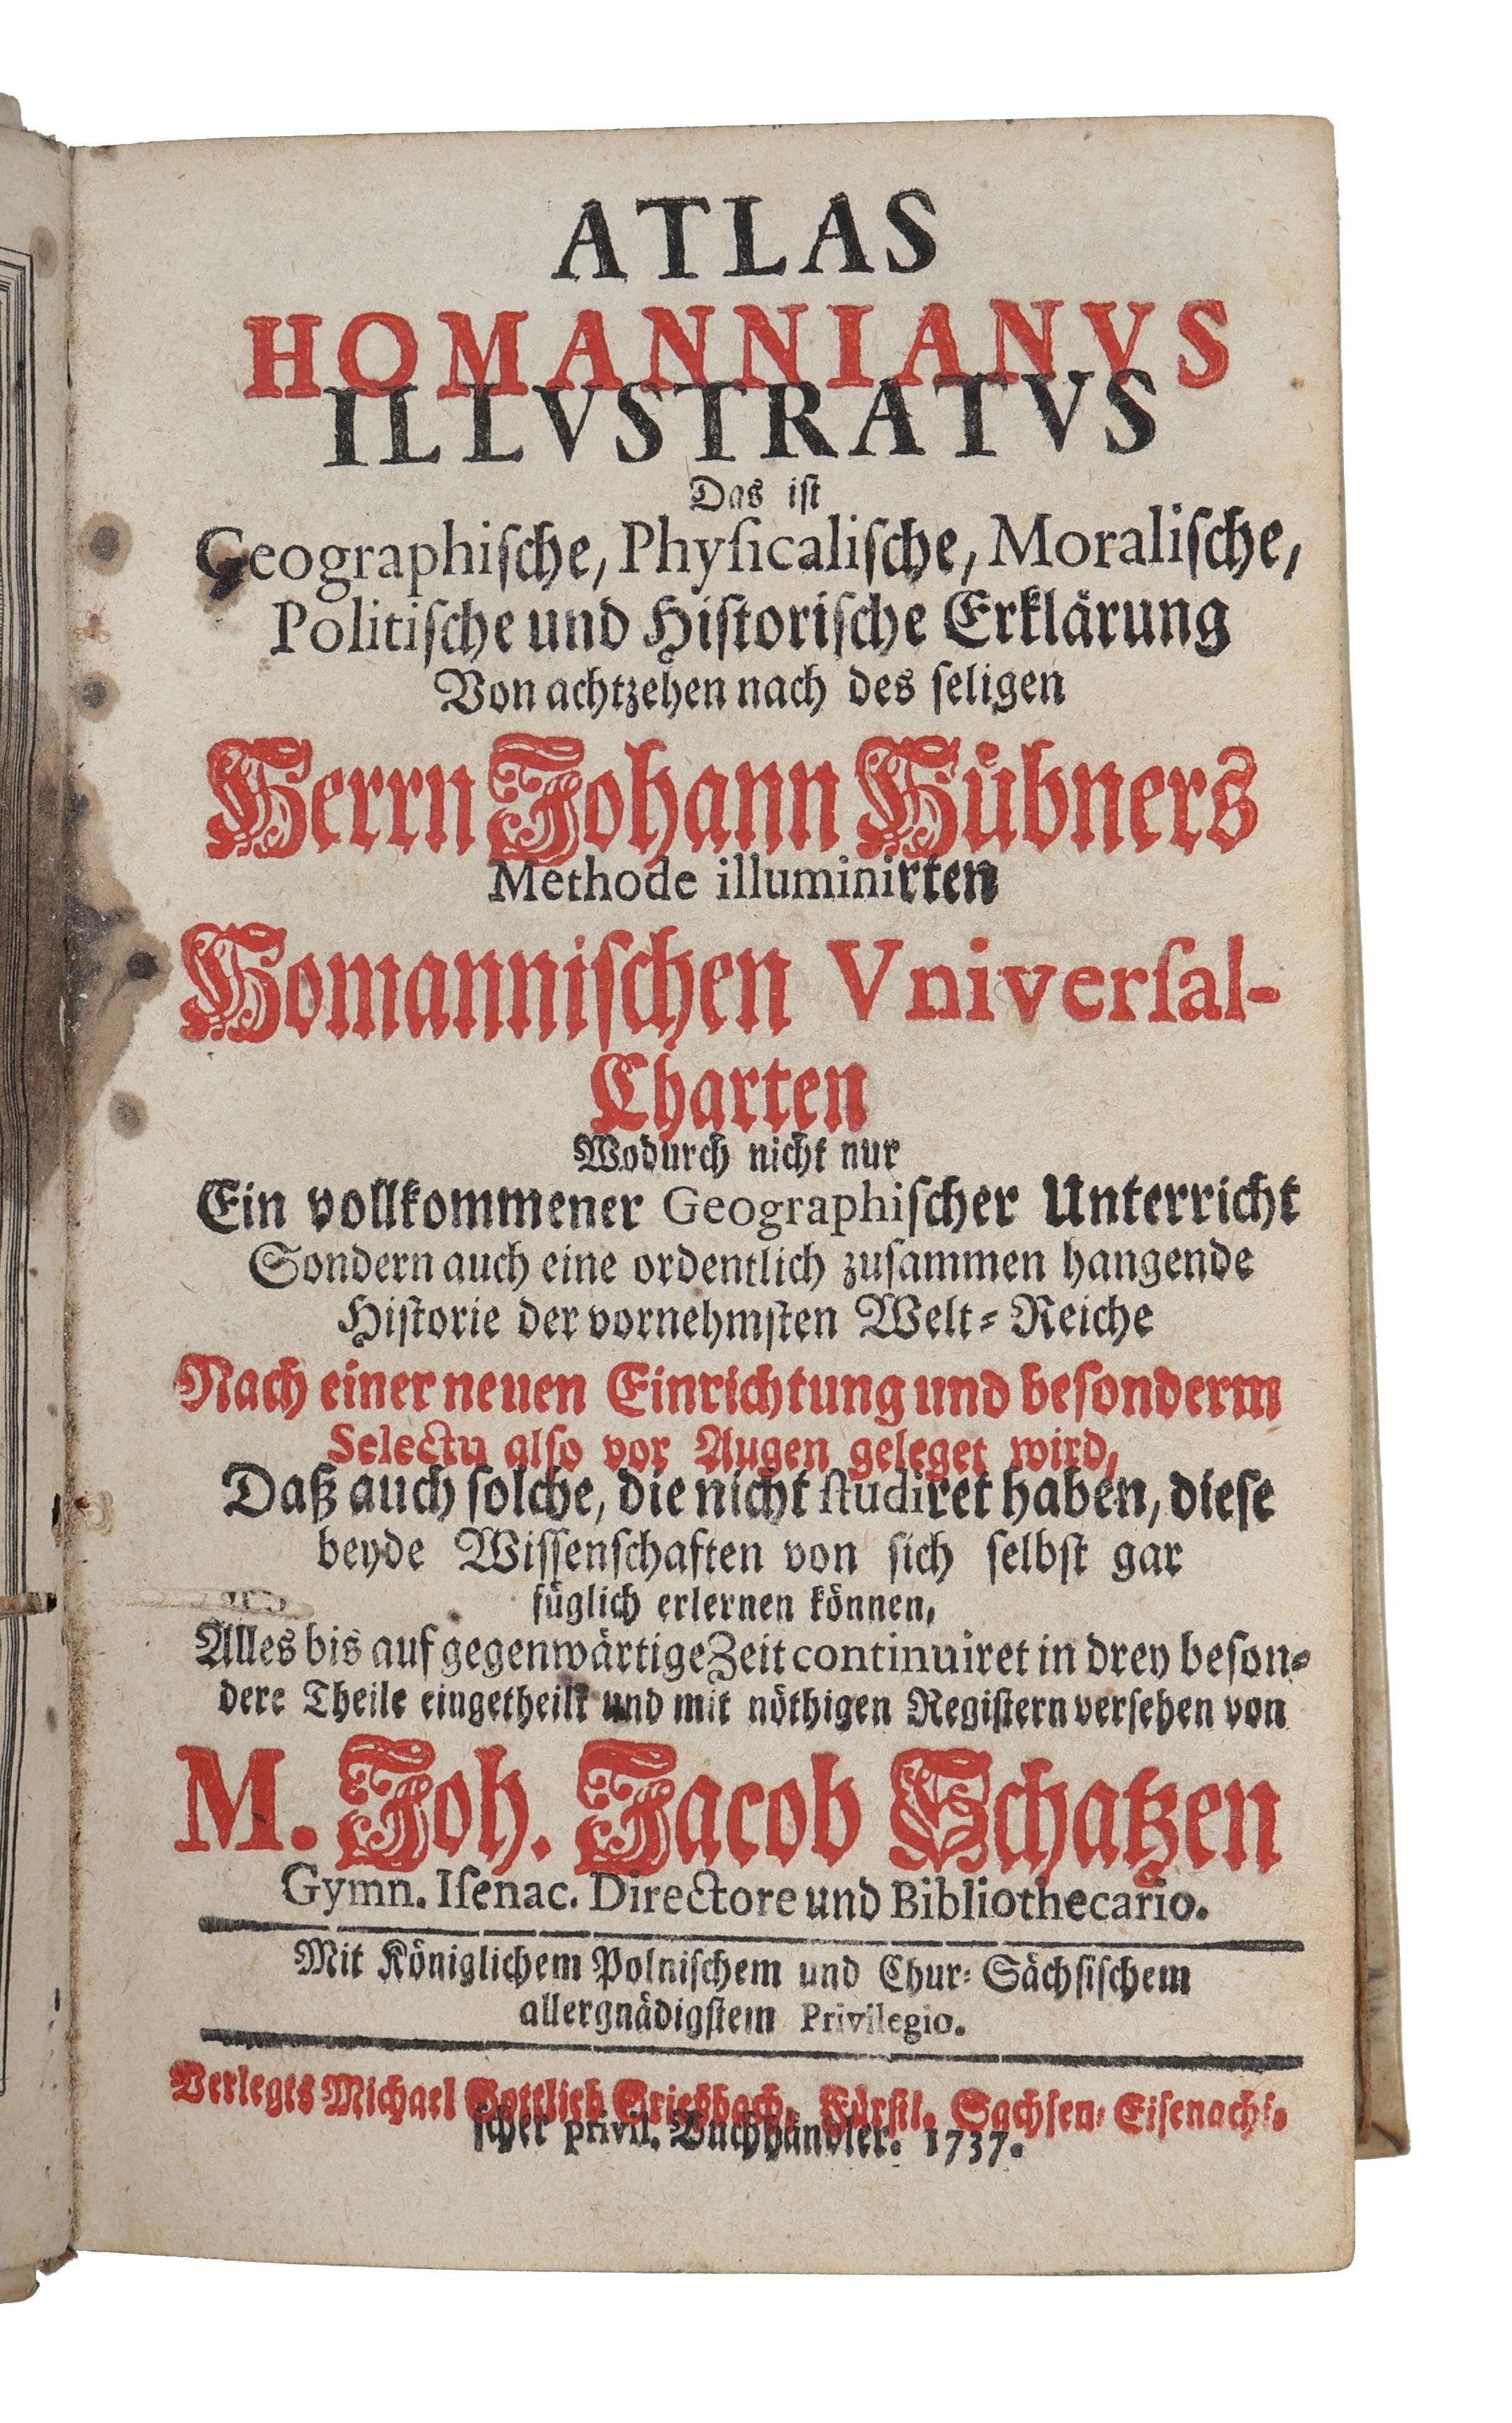 ATLAS
HOMANNIANVS
ILLVSTRATVS
Das iſt
Geographiſche, Phyſicaliſche, Moraliſche,
Politiſche und Hiſtoriſche Erklärung
Von achtzehen nach des ſeligen
Herrn Johann Hübners
Methode illuminirten
Homanniſchen Vniverſal-
Charten
Wodurch nicht nur
Ein vollkommener Geographiſcher Unterricht
Sondern auch eine ordentlich zuſammen hangende
Hiſtorie der vornehmſten Welt⸗Reiche
Nach einer neuen Einrichtung und beſonderm
Selectu alſo vor Augen geleget wird,
Daß auch ſolche, die nicht ſtudiret haben, dieſe
beyde Wiſſenſchaften von ſich ſelbſt gar
füglich erlernen können,
Alles bis auf gegenwärtige Zeit continuiret in drey beſon⸗
dere Theile eingetheilt und mit nöthigen Regiſtern verſehen von
M. Joh. Jacob Schatzen
Gymn. Iſenac. Directore und Bibliothecario.
Mit Königlichem Polniſchem und Chur⸗Sächſiſchem
allergnädigſtem Privilegio.
Verlegts Michael Gottlieb Griesbach, Fürſtl. Sachſen⸗Eiſenachſ.
ſcher privil. Buchhändler. 1737.